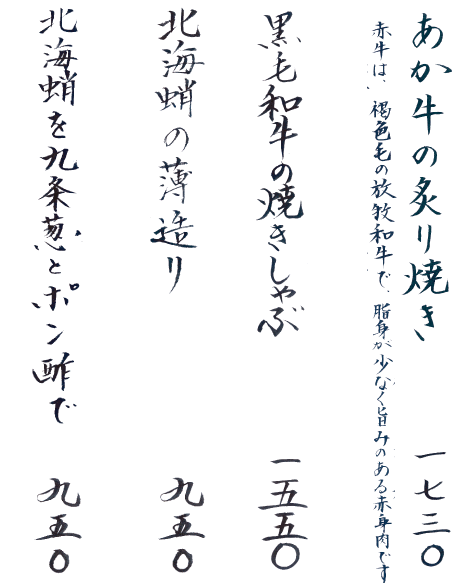 あか牛の炙り焼き 一七三〇
赤牛は、褐色毛の放牧和牛で、脂身が少なく旨みのある赤身肉です
黒毛和牛の焼きしゃぶ 一五五〇
北海蛸の薄造り 九五〇
北海蛸を九条葱とポン酢で 九五〇